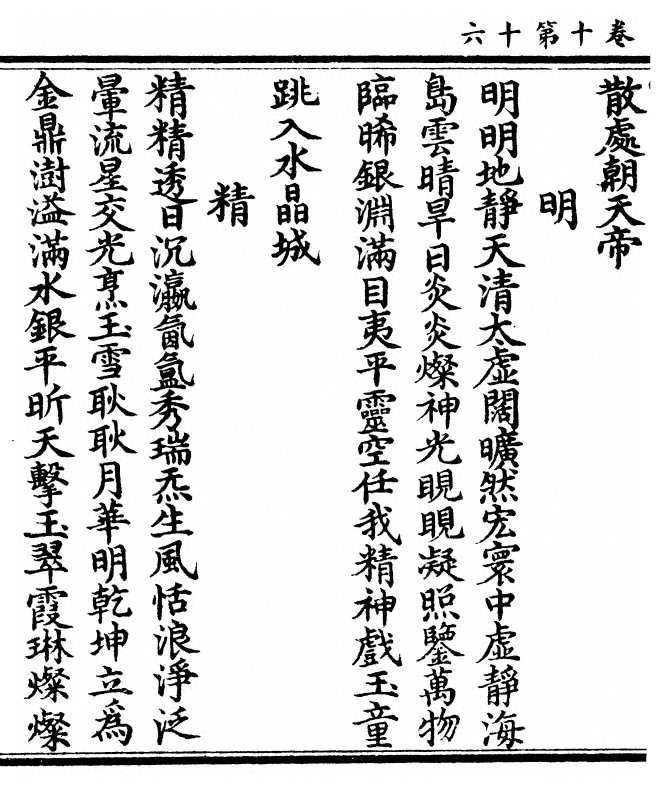 卷十第十六
散處朝天帝
明
明明地靜天清太虛闊曠然宏寰中虛靜海
島雲晴旱日炎炎燦神光晛晛凝照鑒萬物
臨晞銀淵滿目夷平靈空任我精神戲玉童
跳入水晶城
精
精精透日沉瀛氤氳秀瑞炁生風恬浪淨泛
暈流星交光烹玉雪耿耿月華明乾坤立為
金鼎澍溢滿水銀平昕天擊玉翠霞琳燦燦